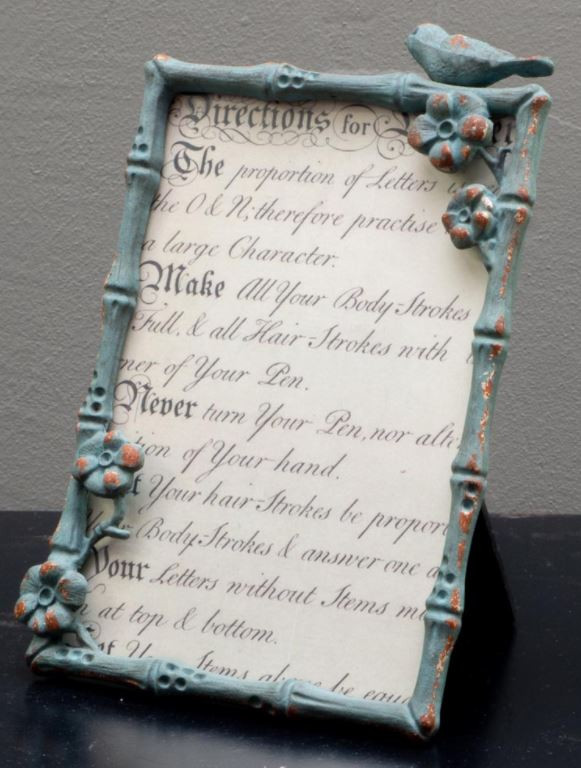 Directions for
The proportion of Letters
the O & N; therefore practise
a large Character.
Make All Your Body-Strokes
Full, & all Hair-Strokes with
ner of Your Pen.
Never turn Your Pen, nor alte
tion of Your hand.
t Your hair-Strokes be proport
Body-Strokes & answer one a
Your Letters without Stems m
at top & bottom.
Stems above be equ